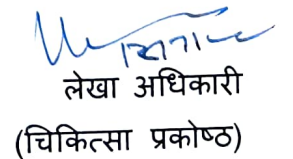 लेखा अधिकारी
(चिकित्सा प्रकोष्ठ)